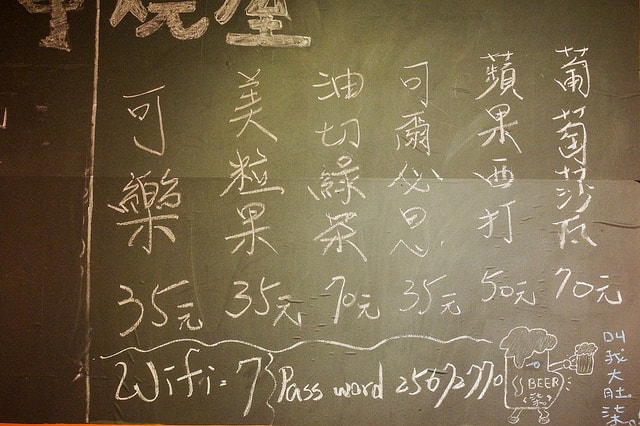 串燒屋
葡萄莎瓦 70元
蘋果西打 50元
可爾必思 35元
油切綠茶 70元
美粒果 35元
可樂 35元
Wifi: 7 Pass word 25672770
BEER
柒
叫我大肚柒。